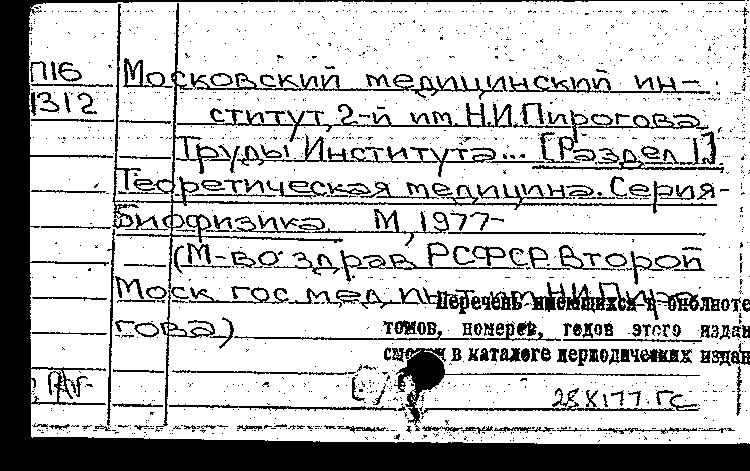 П16 Московский медицинский ин-
1312 ститут, 2-й им. Н.И.Пирогова.
Труды Института... [Раздел 1.]
Теоретическая медицина. Серия-
Биофизика М, 1977-
(М-во здрав РСФСР Второй
Моск гос мед инт им Н.И.Пиро
гова)
Перечень имеющихся в библиоте
томов, номеров, годов этого издан
смотри в каталоге периодических издан
28XI77 ГС